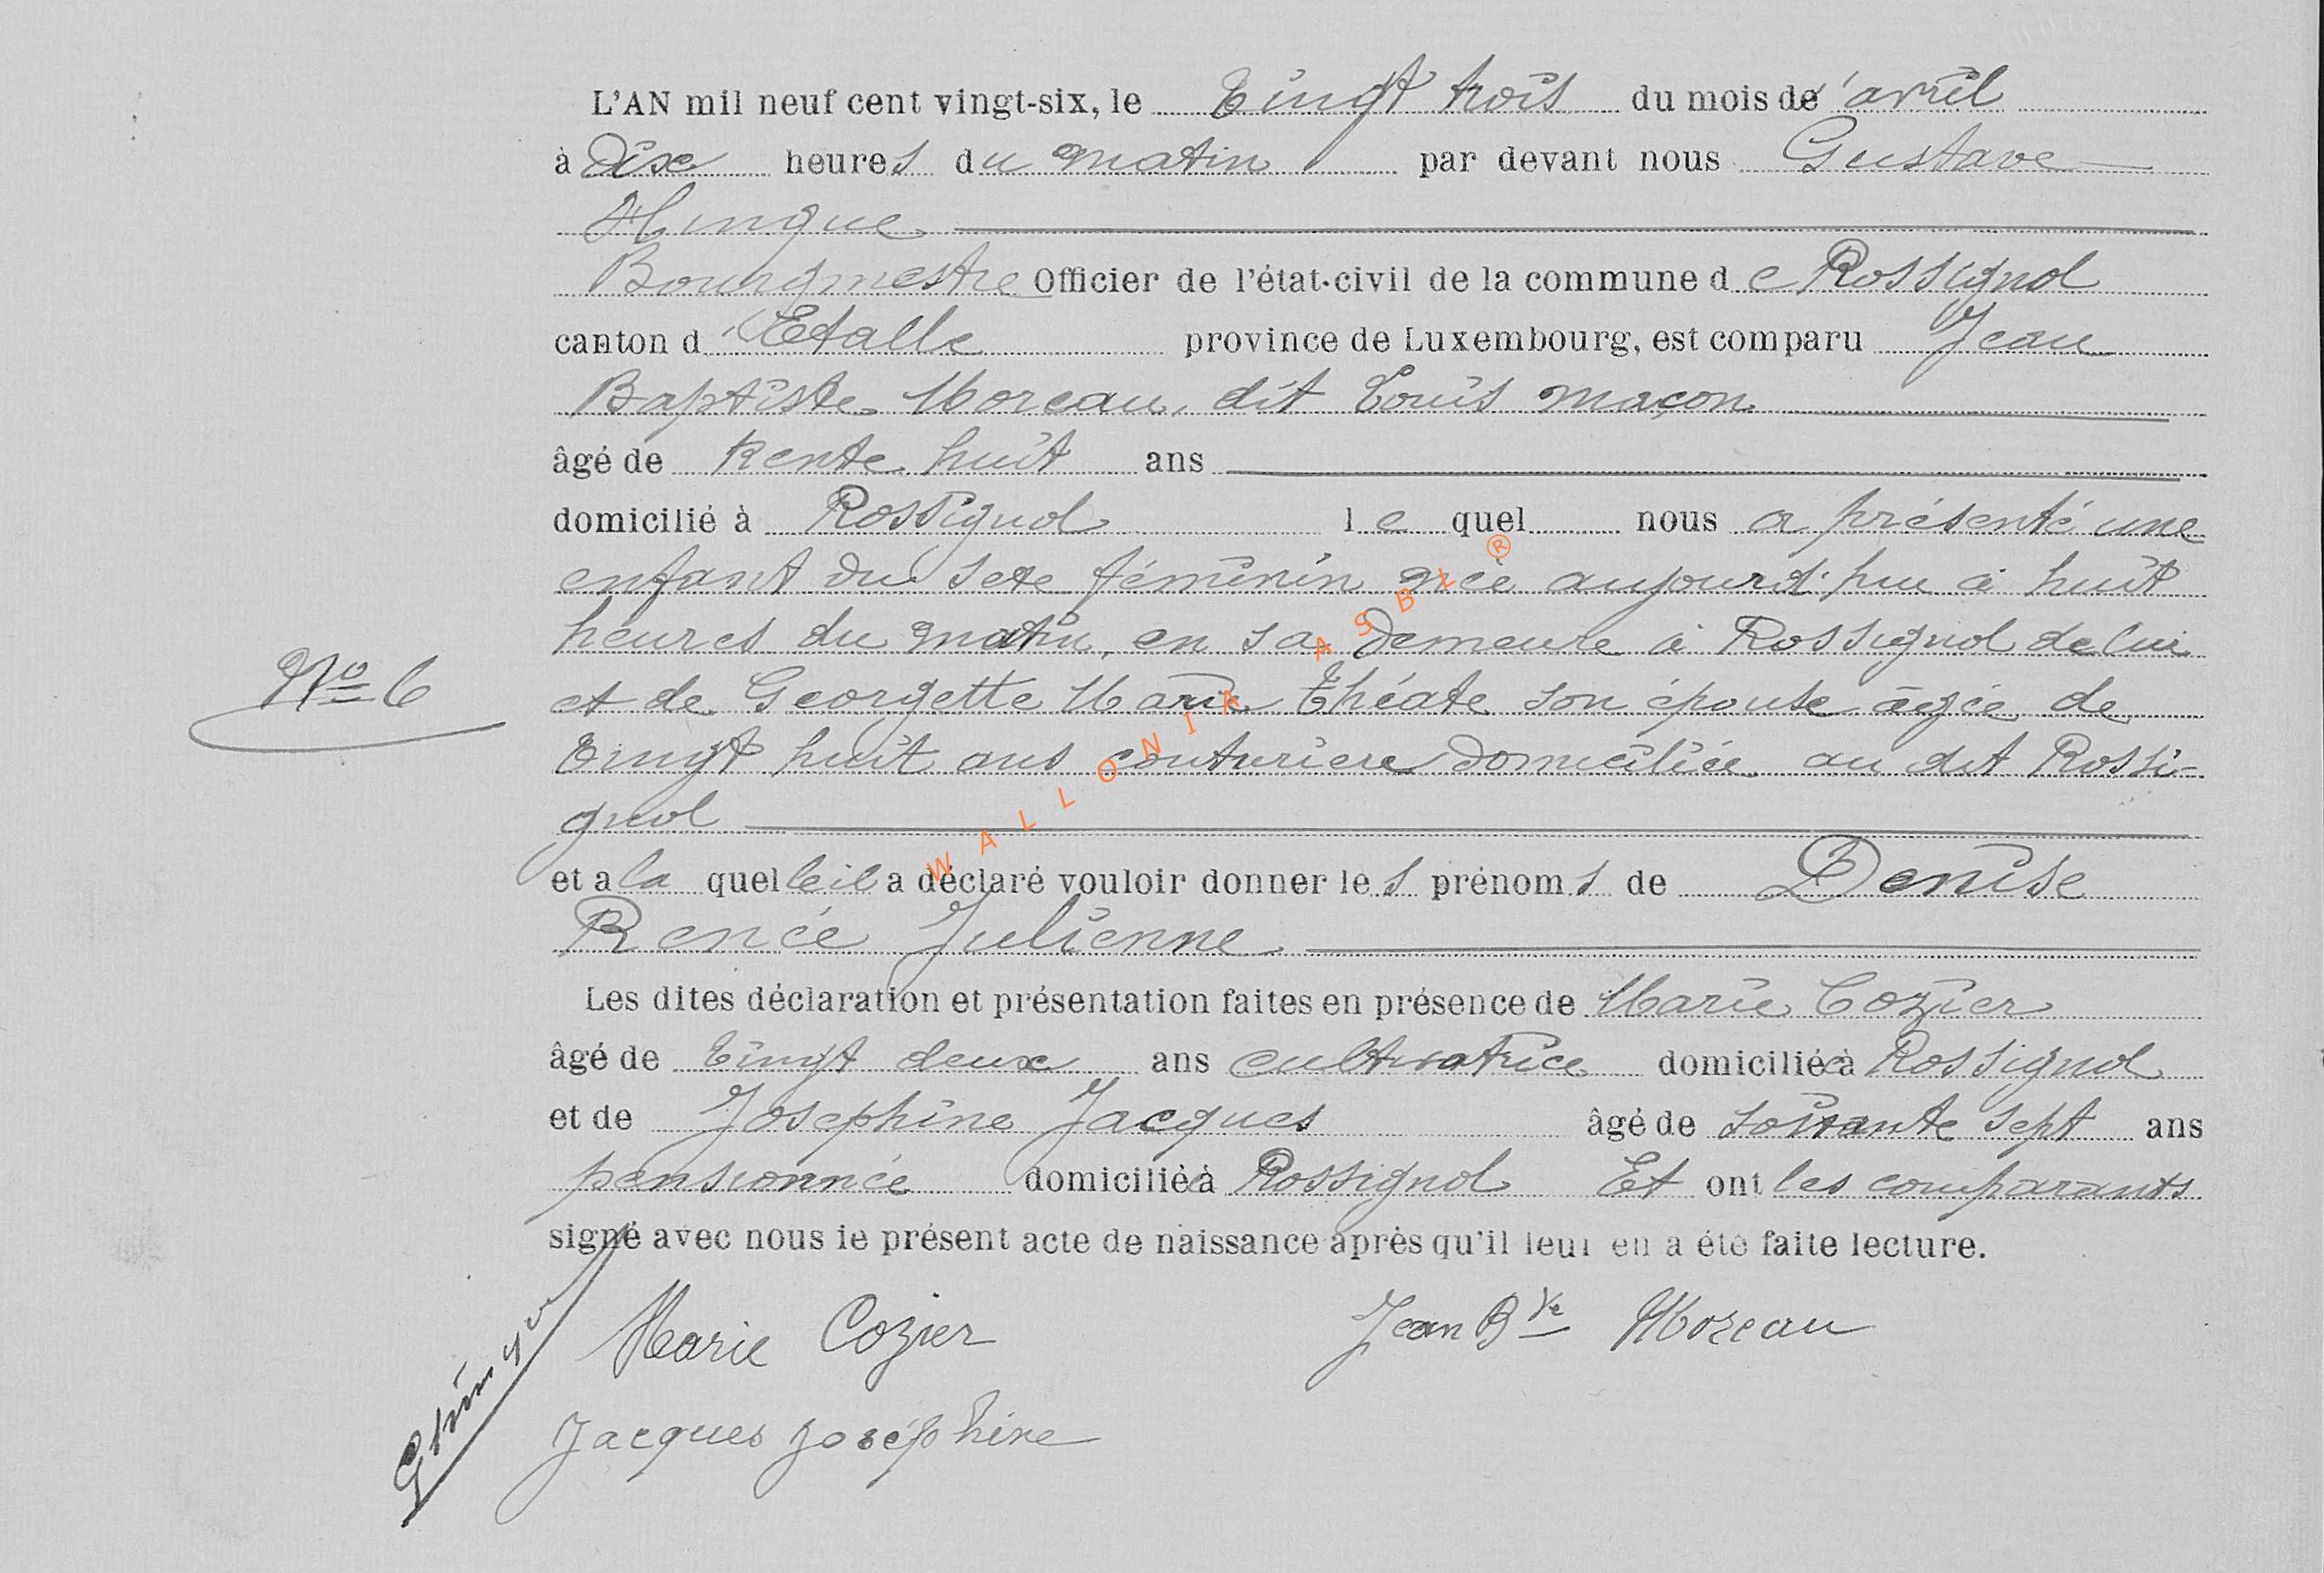 L'AN mil neuf cent vingt-six, le Vingt trois du mois de 'avril
à Dix heures du matin par devant nous Gustave
Hinque
Bourgmestre Officier de l'état-civil de la commune de Rossignol
canton d'Etalle province de Luxembourg, est comparu Jean
Baptiste Moreau, dit Louis maçon
âgé de trente huit ans
domicilié à Rossignol lequel nous a présenté une
enfant du sexe féminin née aujourd'hui à huit
heures du matin, en sa demeure à Rossignol de lui
N° 6
et de Georgette Marie Théate son épouse âgée de
Vingt huit ans couturière domiciliée au dit Rossi-
gnol
et a laquelle il a déclaré vouloir donner les prénoms de Denise
Renée Julienne
Les dites déclaration et présentation faites en présence de Marie Cozier
âgé de Vingt deux ans cultivatrice domiciliée à Rossignol
et de Joséphine Jacques âgé de soixante sept ans
pensionnée domiciliée à Rossignol Et ont les comparants
signé avec nous le présent acte de naissance après qu'il leur en a été faite lecture.
Marie Cozier Jean Bte Moreau
Jacques Joséphine
WALLONIA ASBL ®